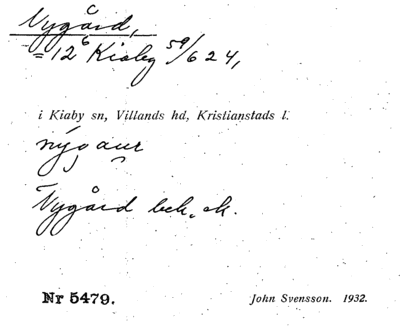 Nygård,
= 12⁶ Kiaby 59/624,
i Kiaby sn, Villands hd, Kristianstads l.
Nygård bek. ok.
Nr 5479.
John Svensson. 1932.